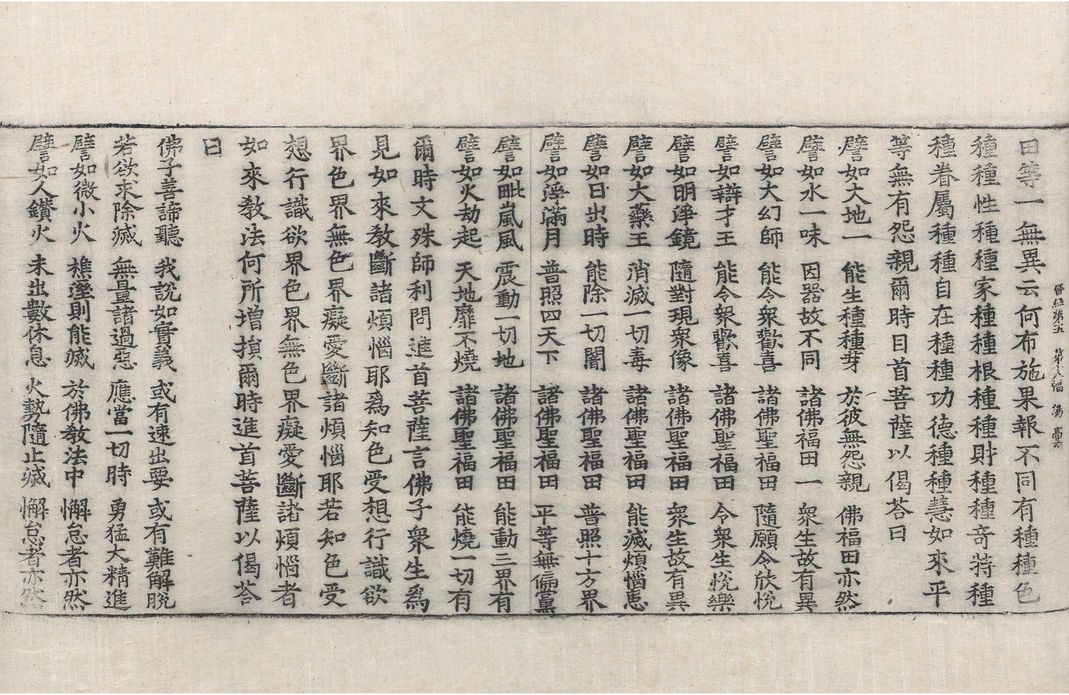 田等一無異云何布施果報不同有種種色
種種性種種家種種根種種財種種奇特種
種眷屬種種自在種種功德種種慧如來平
等無有怨親爾時目首菩薩以偈荅曰
譬如大地一　能生種種芽　於彼無怨親　佛福田亦然
譬如水一味　因器故不同　諸佛福田一　衆生故有異
譬如大幻師　能令衆歡喜　諸佛福田　隨願令欣悅
譬如辯才王　能令衆歡喜　諸佛聖福田　令衆生悅樂
譬如明淨鏡　隨對現衆像　諸佛聖福田　衆生故有異
譬如大藥王　消滅一切毒　諸佛聖福田　能滅煩惱患
譬如日出時　能除一切闇　諸佛聖福田　普照十方界
譬如淨滿月　普照四天下　諸佛聖福田　平等無偏黨
譬如毗嵐風　震動一切地　諸佛聖福田　能動三界有
譬如火劫起　天地靡不燒　諸佛聖福田　能燒一切有
爾時文殊師利問進首菩薩言佛子衆生爲
見如來教斷諸煩惱耶爲知色受想行識欲
界色界無色界癡愛斷諸煩惱耶若知色受
想行識欲界色界無色界癡愛斷諸煩惱者
如來教法何所增損爾時進首菩薩以偈荅
曰
佛子善諦聽　我說如實義　或有速出要　或有難解脫
若欲求除滅　無量諸過惡　應當一切時　勇猛大精進
譬如微小火　樵溼則能滅　於佛教法中　懈怠者亦然
譬如人鑽火　未出數休息　火勢隨止滅　懈怠者亦然
晉經第五　第八幅